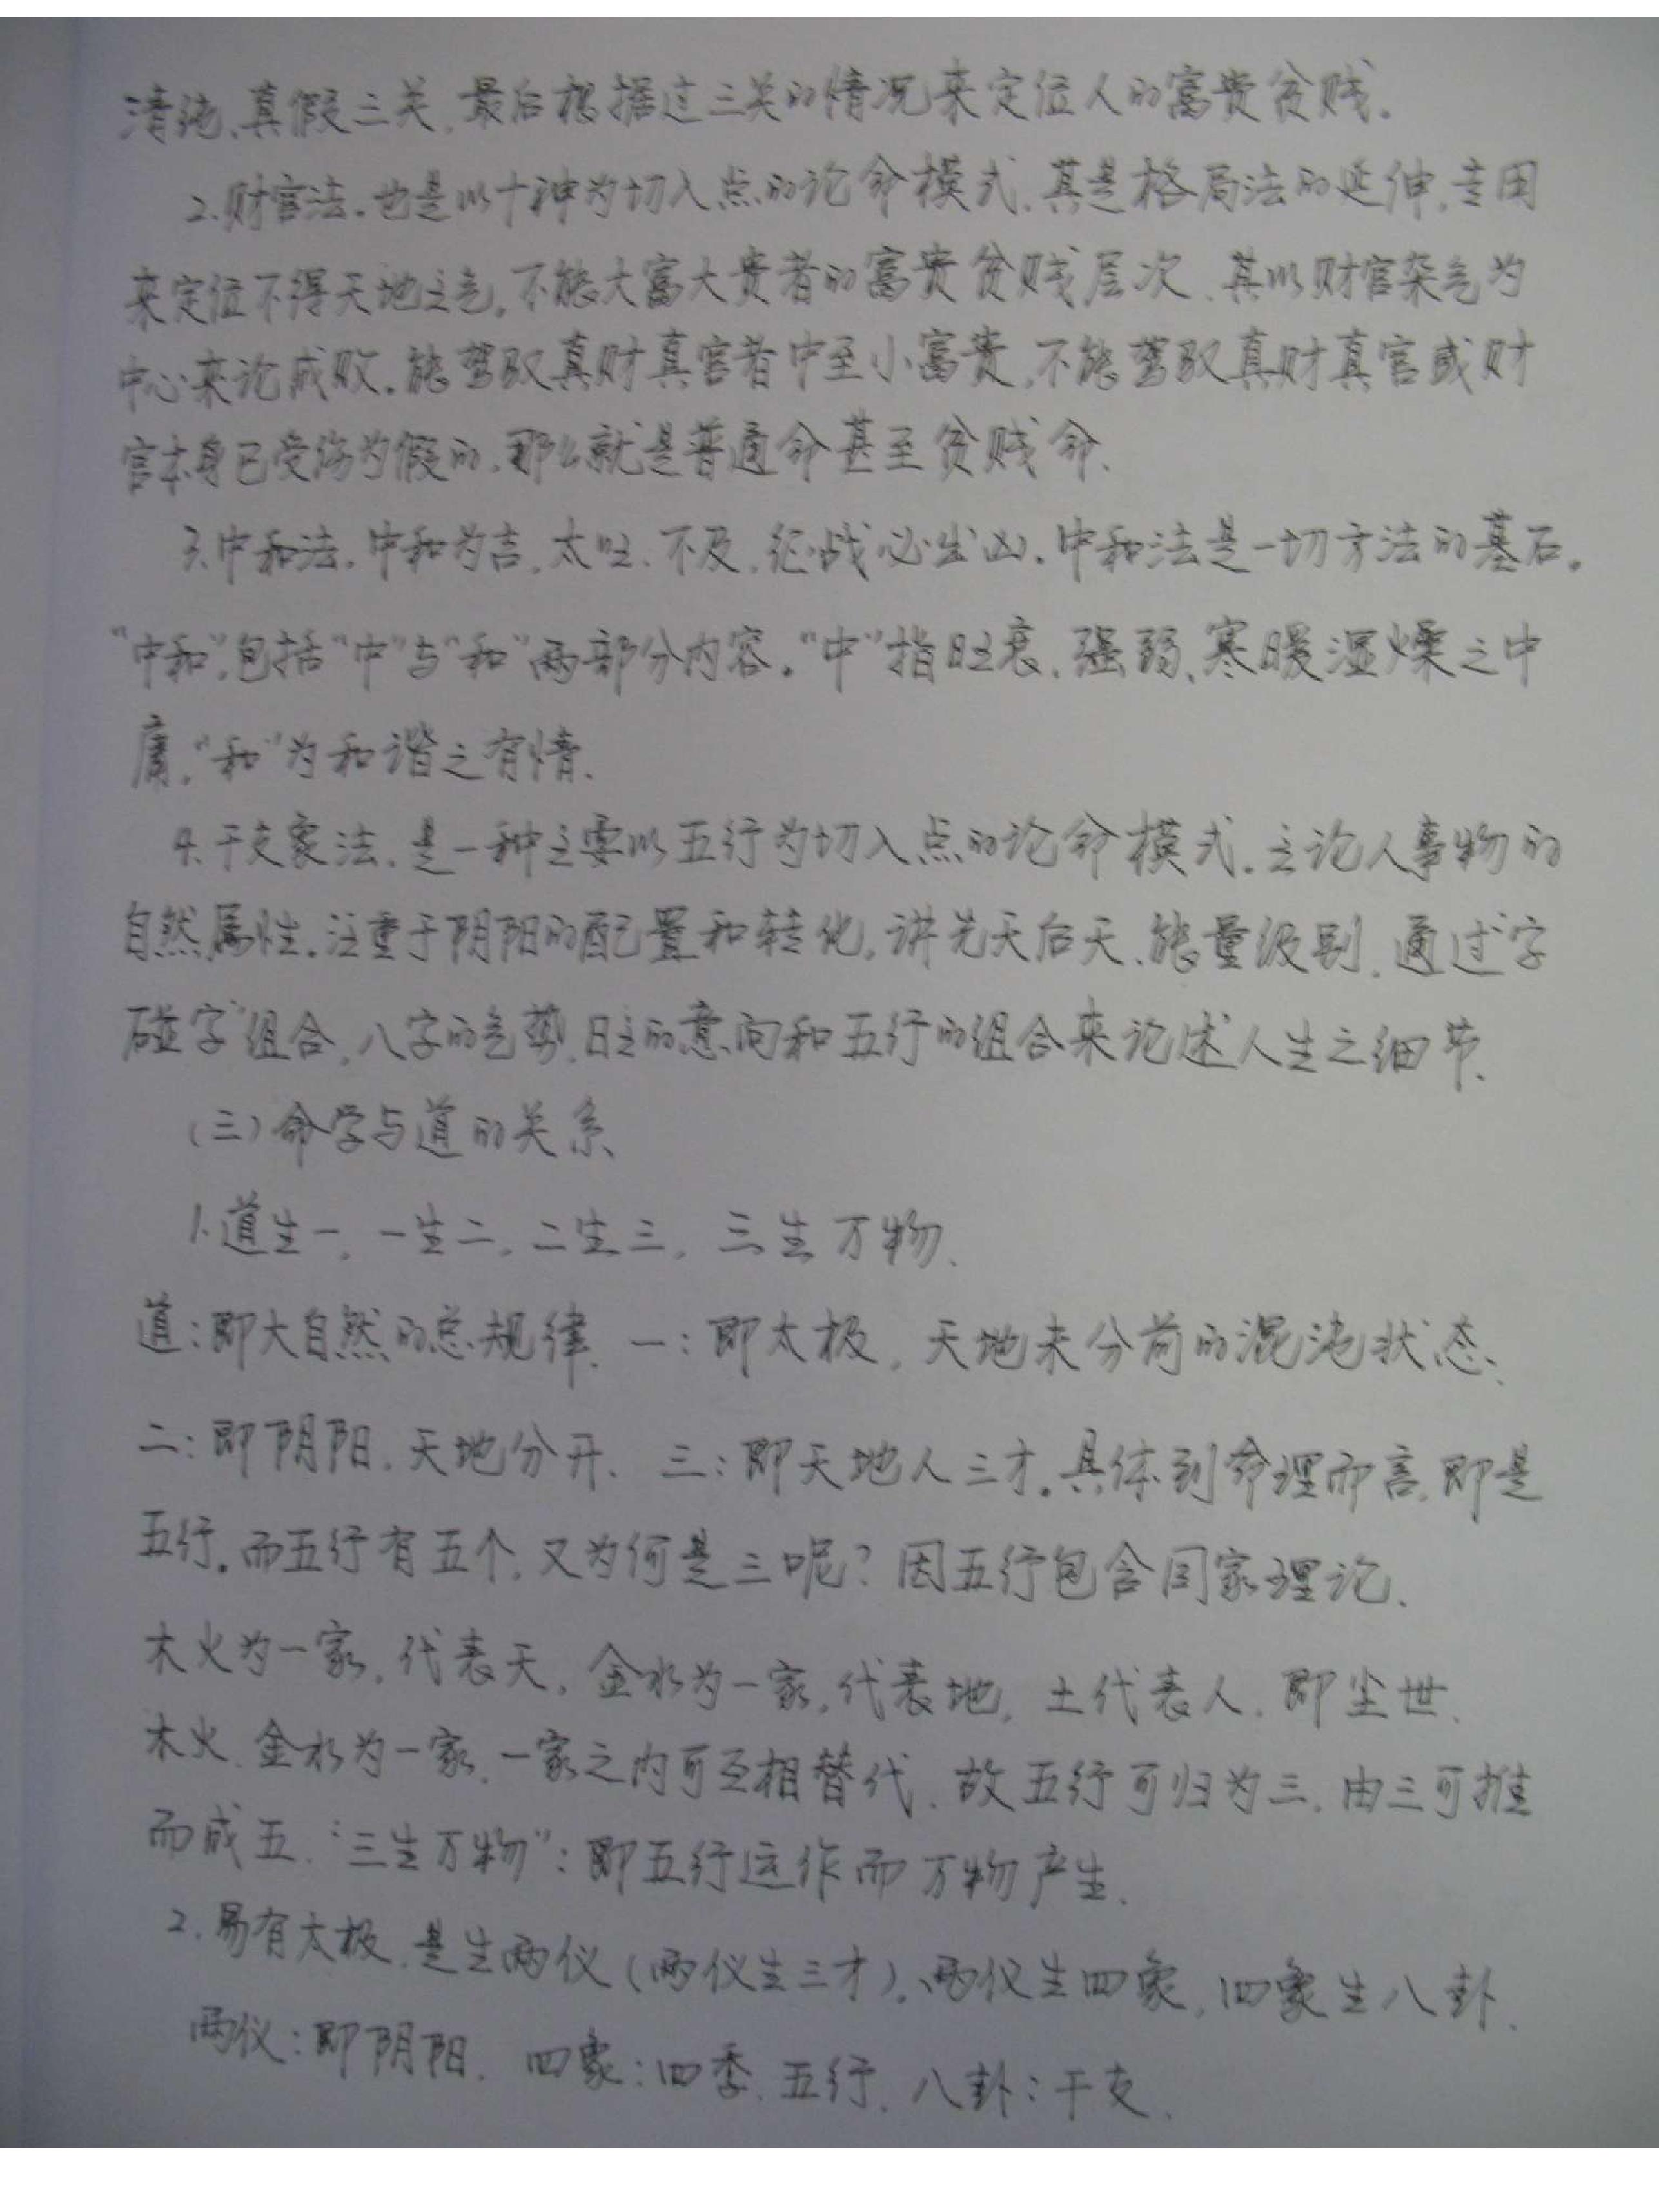 清纯、真假三关,最后根据过三关的情况来定位人的富贵贫贱.
2.财官法.也是以十神为切入点的论命模式.其是格局法的延伸,专用
来定位不得天地之气,不能大富大贵者的富贵贫贱层次、其以财官杂气为
中心来论成败.能驾驭真财真官者中至小富贵,不能驾驭真财真官或财
官本身已受伤为假的,那么就是普通命甚至贫贱命、
3.中和法.中和为吉,太旺、不及、征战必生凶.中和法是一切方法的基石。
“中和”,包括“中”与“和”两部分内容。“中”指旺衰、强弱、寒暖湿燥之中
庸,“和”为和谐之有情、
4.干支象法、是一种主要以五行为切入点的论命模式.主论人事物的
自然属性.注重于阴阳的配置和转化,讲先天后天、能量级别、通过“字
碰字”组合,八字的气势、日主的意向和五行的组合来论述人生之细节、
(三)命学与道的关系
1.道生一,一生二,二生三,三生万物、
道:即大自然的总规律、一:即太极,天地未分前的混沌状态、
二:即阴阳、天地分开、三:即天地人三才.具体到命理而言,即是
五行.而五行有五个,又为何是三呢?因五行包含同家理论、
木火为一家,代表天,金水为一家,代表地,土代表人、即尘世、
木火、金水为一家、一家之内可互相替代、故五行可归为三,由三可推
而成五、“三生万物”:即五行运作而万物产生、
2.易有太极、是生两仪(两仪生三才),两仪生四象,四象生八卦、
两仪:即阴阳、四象:四季、五行、八卦:干支、